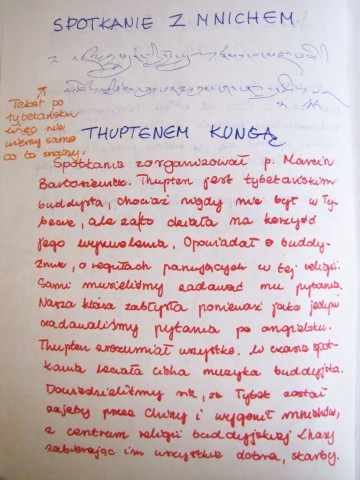 SPOTKANIE Z MNICHEM
Tekst po
tybetańsku
co to znaczy.
THUPTENEM KUNGĄ
Spotkanie zorganizował p. Marcin
Thupten jest tybetańskim
buddystą, chociaż nigdy nie był w Ty-
becie, ale za to działa na korzyść
jego wyzwolenia. Opowiadał o buddy-
zmie, o regułach panujących w tej religii.
Sami musieliśmy zadawać mu pytania.
Nasza klasa zabłysła ponieważ jako jedyni
zadawaliśmy pytania po angielsku.
Thupten zrozumiał wszystko. W czasie spot-
kania leciała cicha muzyka buddyjska.
Dowiedzieliśmy się, że Tybet został
zajęty przez Chiny i wygonił mnichów,
z centrum religii buddyjskiej Lhasy
zabierając im wszystkie dobra, skarby.